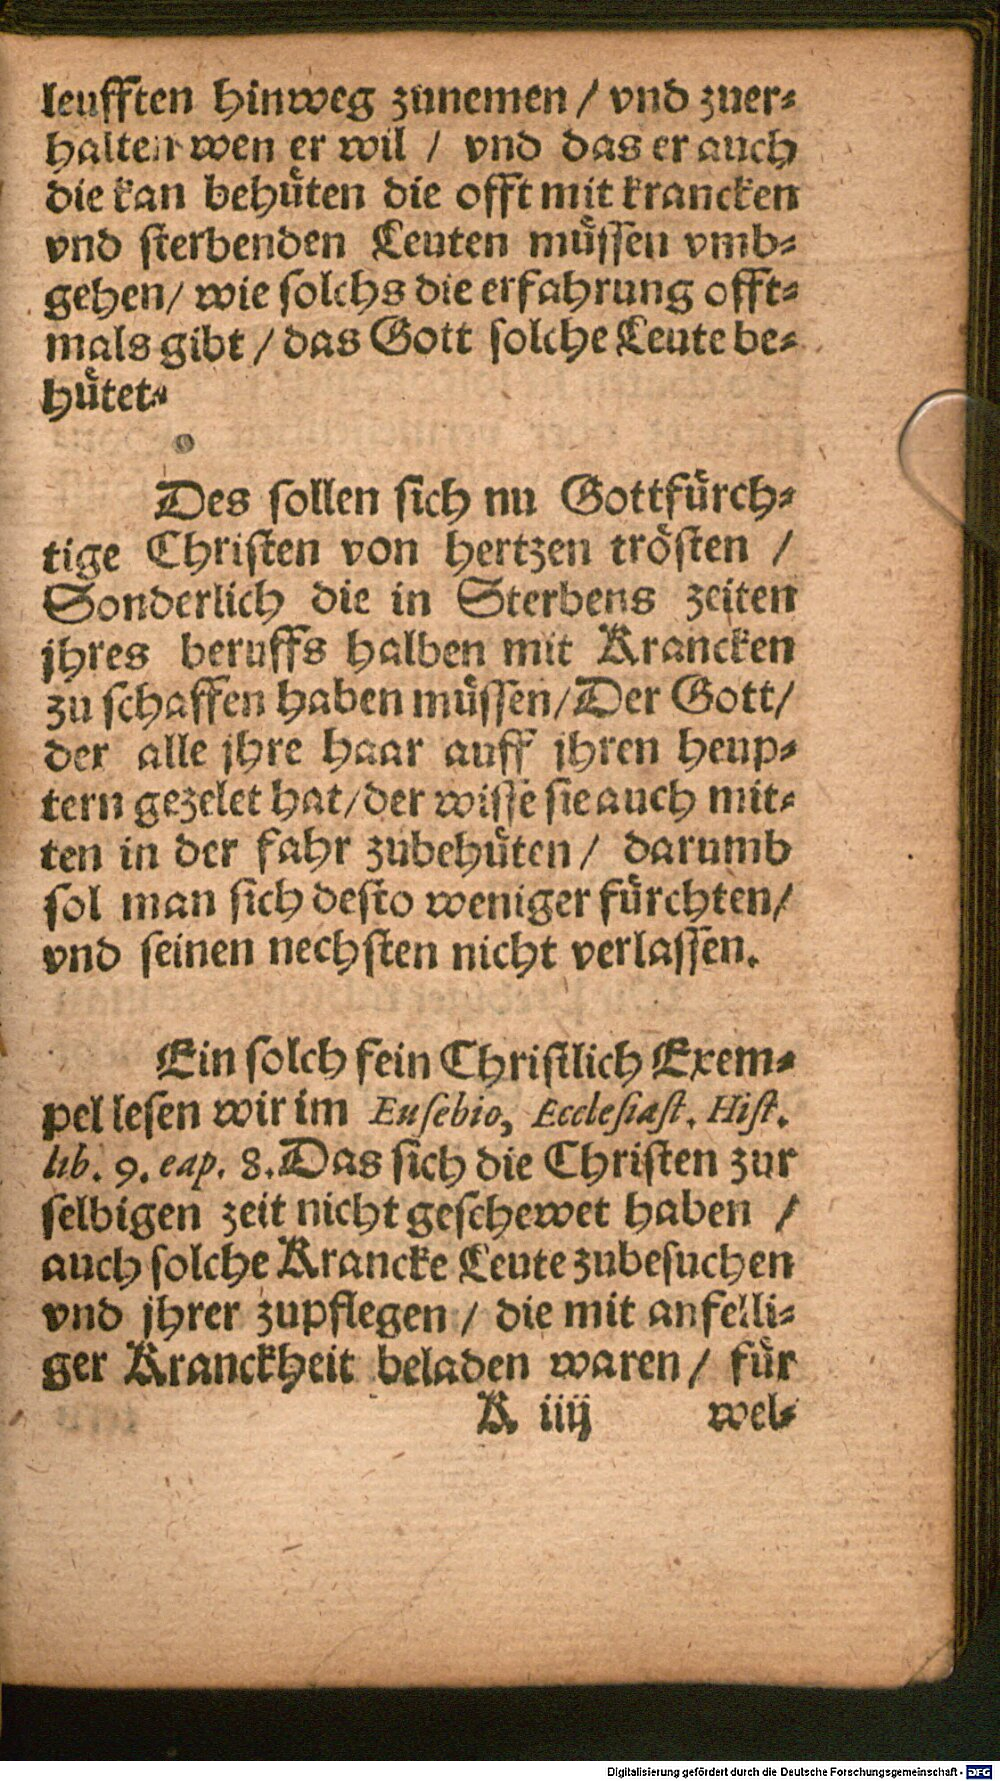 leufften hinweg zunemen / vnd zuer⸗
halten wen er wil / vnd das er auch
die kan behuͤten die offt mit krancken
vnd sterbenden Leuten muͤssen vmb⸗
gehen / wie solchs die erfahrung offt⸗
mals gibt / das Gott solche Leute be⸗
huͤtet.
Des sollen sich nu Gottfuͤrch⸗
tige Christen von hertzen troͤsten /
Sonderlich die in Sterbens zeiten
jhres beruffs halben mit Krancken
zu schaffen haben muͤssen / Der Gott /
der alle jhre haar auff jhren heup⸗
tern gezelet hat / der wisse sie auch mit⸗
ten in der fahr zubehuͤten / darumb
sol man sich desto weniger fuͤrchten /
vnd seinen nechsten nicht verlassen.
Ein solch fein Christlich Exem⸗
pel lesen wir im Eusebio, Ecclesiast. Hist.
lib. 9. cap. 8. Das sich die Christen zur
selbigen zeit nicht geschewet haben /
auch solche Krancke Leute zubesuchen
vnd jhrer zupflegen / die mit anfelli⸗
ger Kranckheit beladen waren / fuͤr
K iiij wel⸗
Digitalisierung gefördert durch die Deutsche Forschungsgemeinschaft - DFG